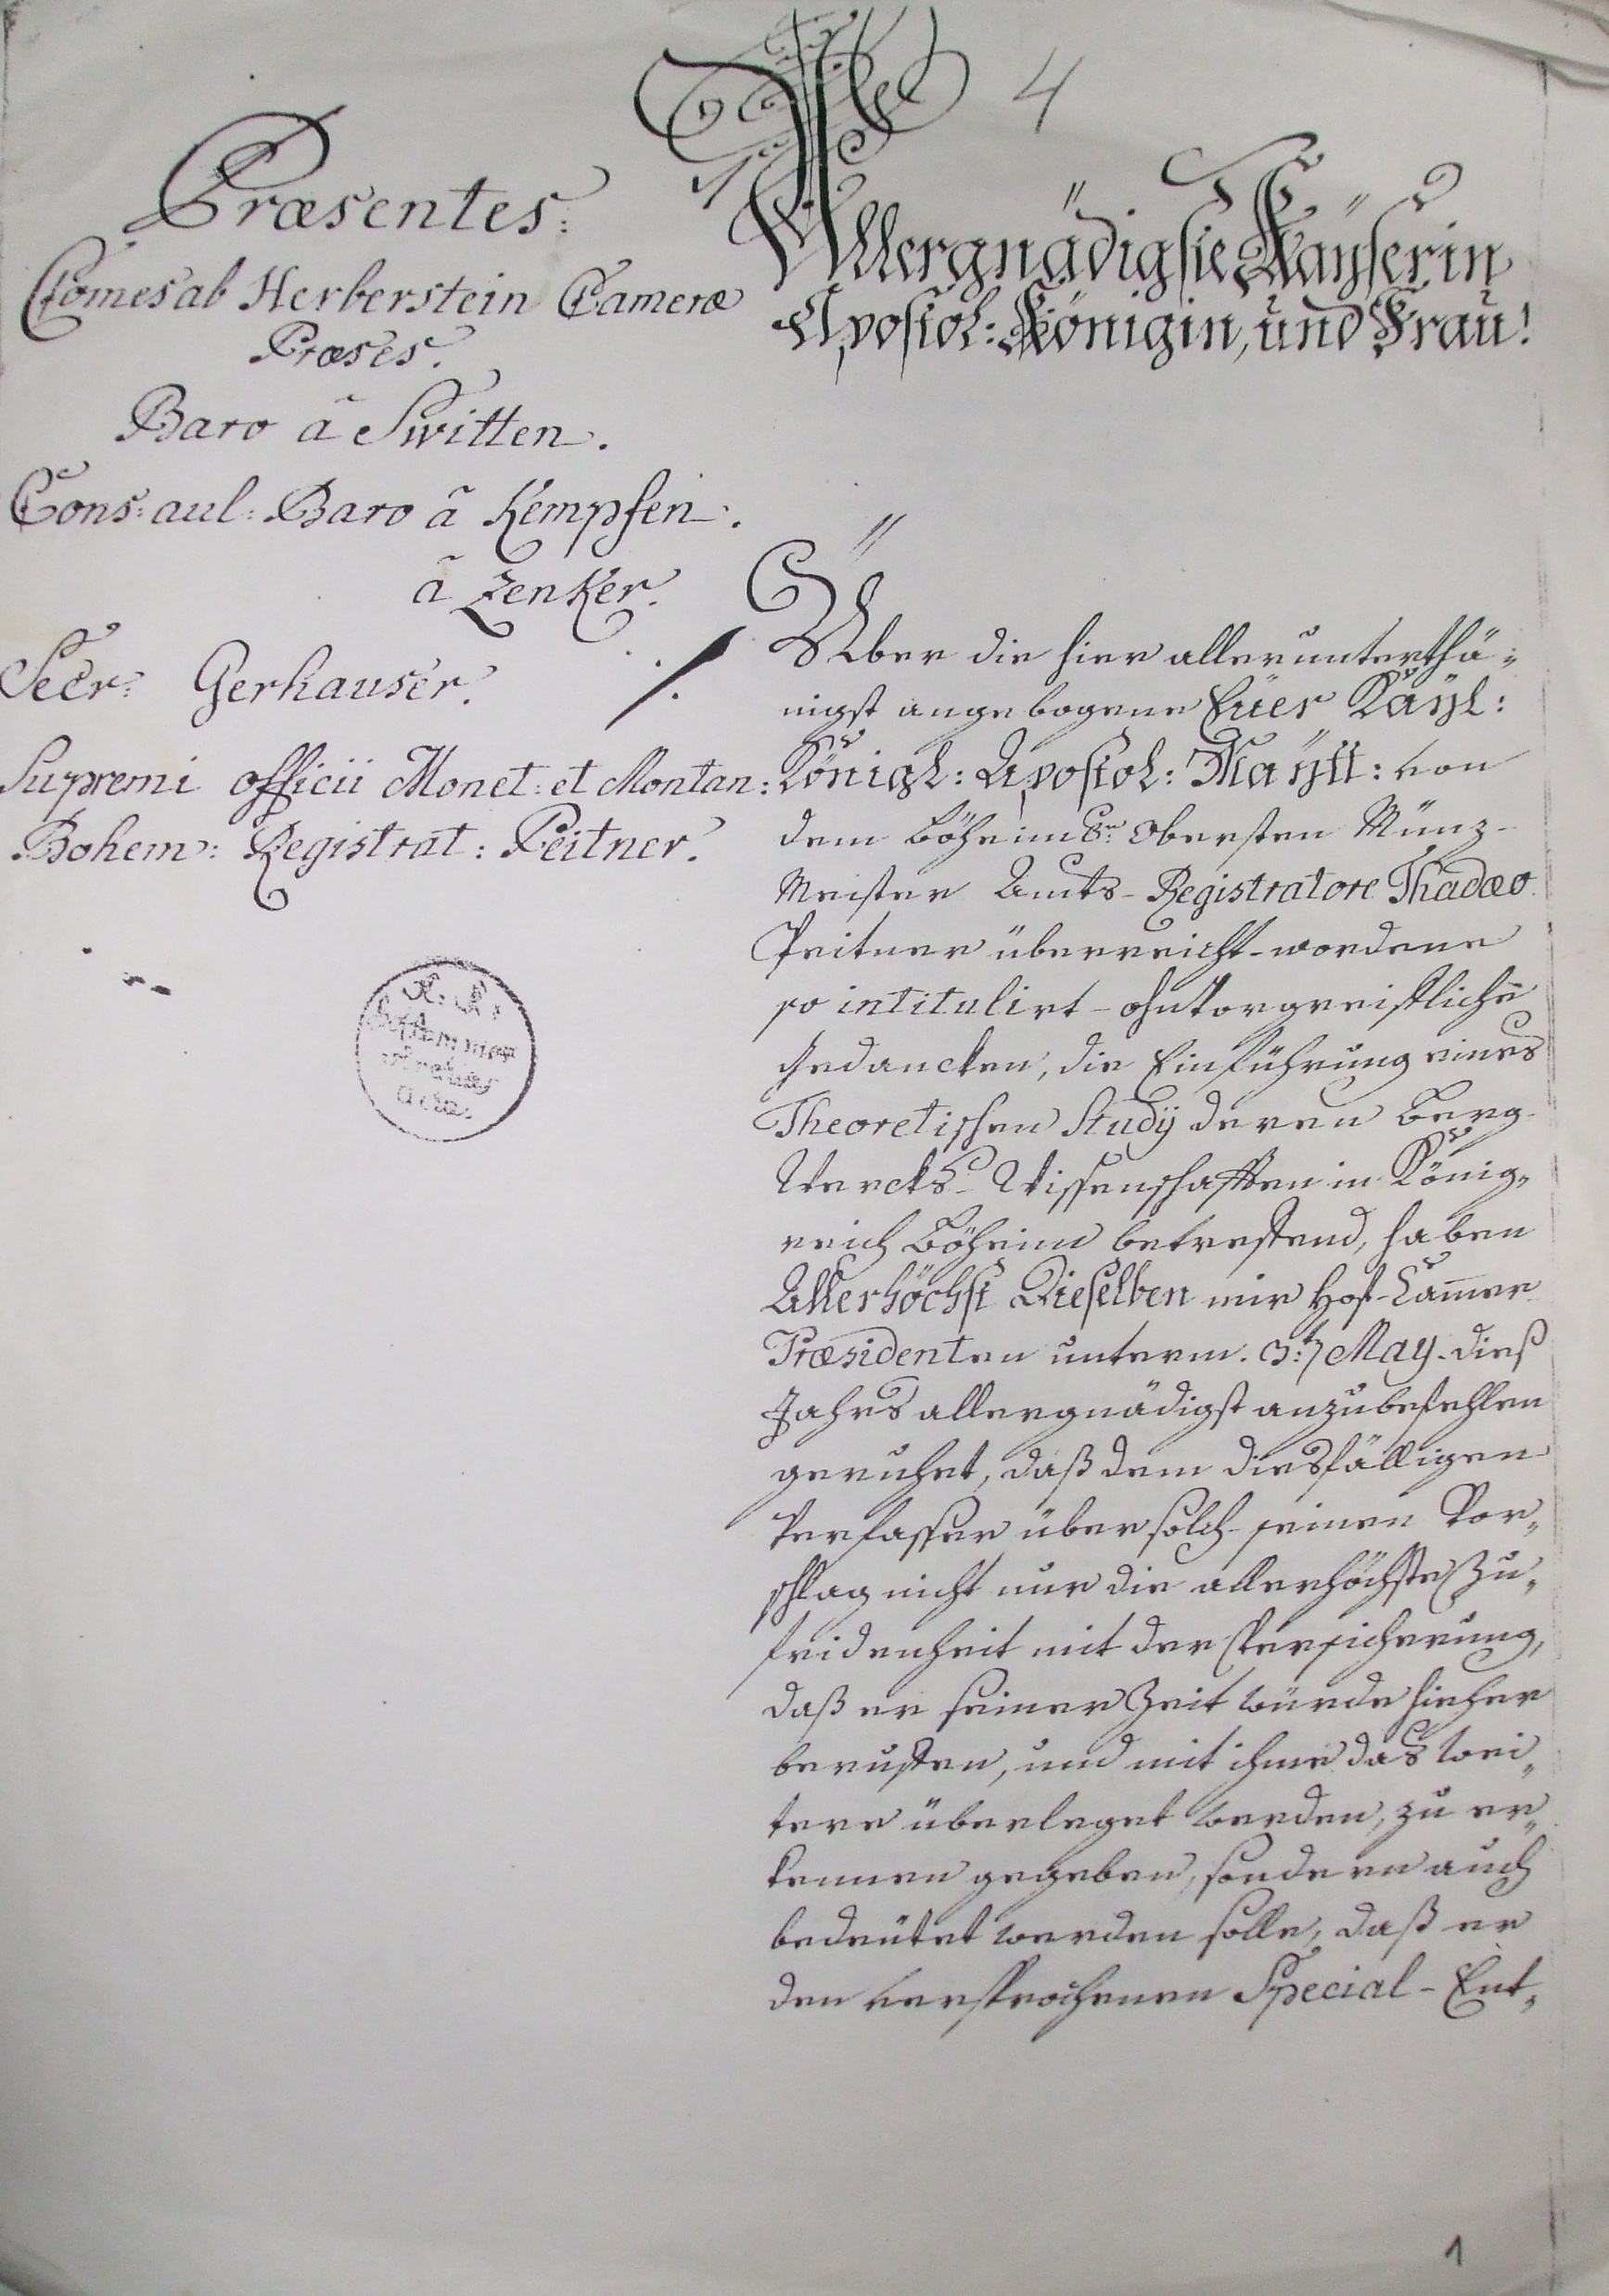 4
Præsentes:
Comes ab Herberstein Cameræ
Præses.
Baro â Switten.
Cons: aul: Baro â Kempfen.
â Zenker.
Secr: Gerhauser.
Supremi officii Monet: et Montan:
Bohem: Registrat: Peitner.
Allergnädigste Kaÿserin
Apostol: Königin, und Frau!
Über die hier allerunterthä„
nigst angebogene Euer Kaÿl:
Königl: Apostol: Maÿtt: von
dem Böheims: Obersten Münz-
Meister Amts-Registratore Thadæo
Peitner überreicht-wordene
so intitulirt-ohnvorgreifliche
Gedancken, die Einführung eines
Theoretischen Studÿ deren Berg-
Wercks-Wissenschafften in König„
reich Böheim betreffend, haben
Allerhöchst Dieselben mir Hof-Cam̄er
Præsidenten unterm 3:t May dieß
Jahrs allergnädigst anzubefehlen
geruhet, daß dem diesfälligen
Verfasser über solch-seinen Vor„
schlag nicht nur die allerhöchste Zu„
fridenheit mit der Versicherung,
daß er seiner Zeit würde hieher
beruffen, und mit ihme das wei„
tere überleget werden, zu er„
kennen gegeben, sondern auch
bedeutet werden solle, daß er
den versprochenen Special-Ent„
1